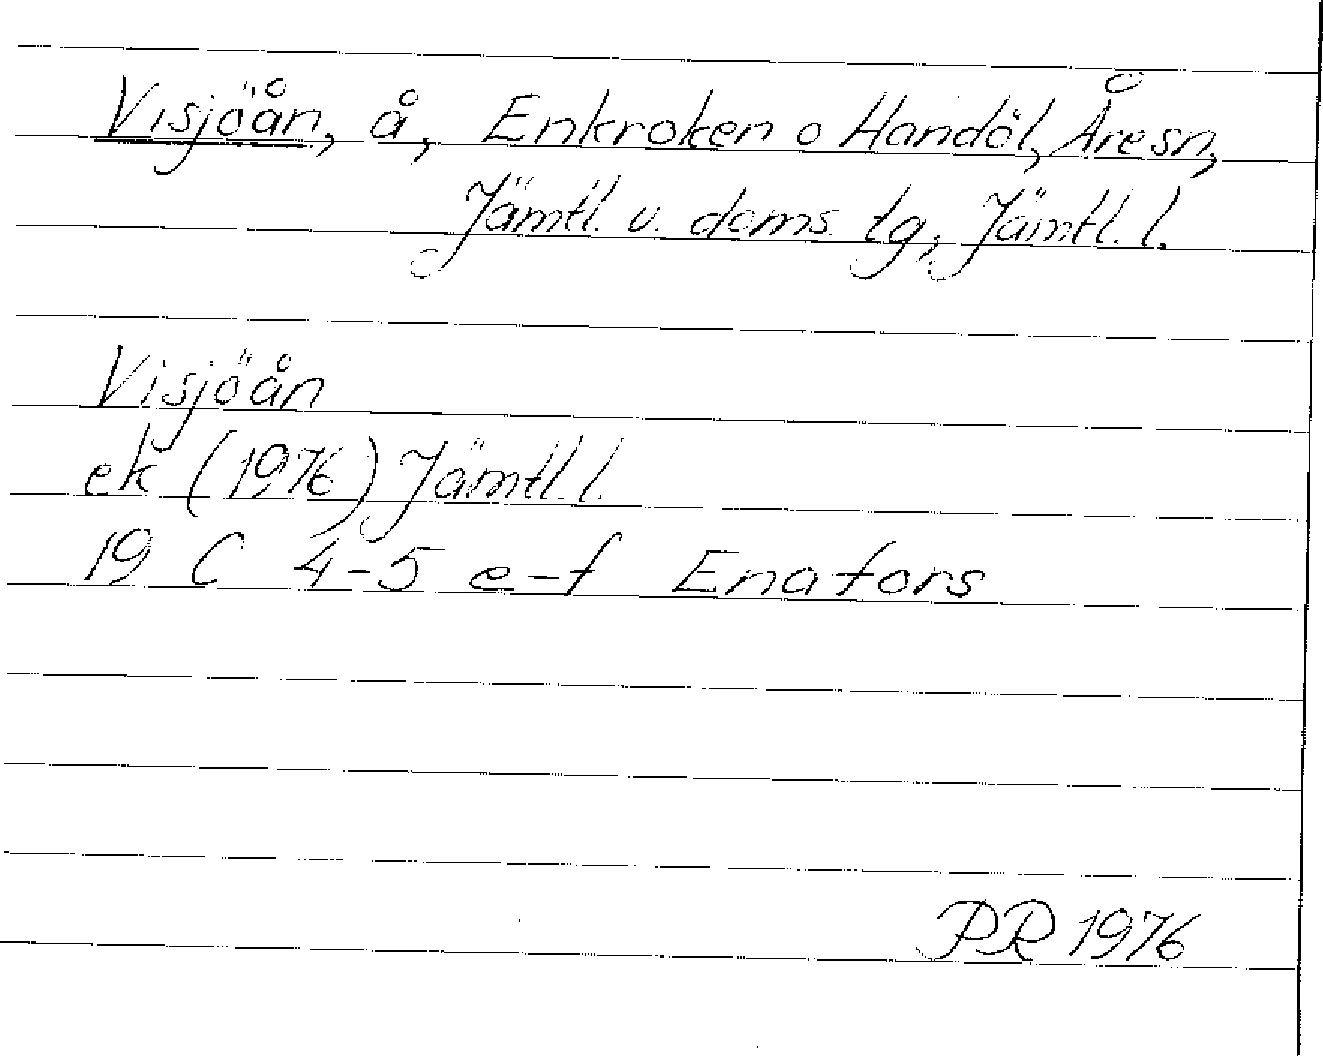 Visjöån, å, Enkroken o Handöl, Åre sn,
Jämtl. v. doms. tg, Jämtl. l.
Visjöån
ek (1976) Jämtl. l.
19 C 4-5 e-f Enafors
PR 1976